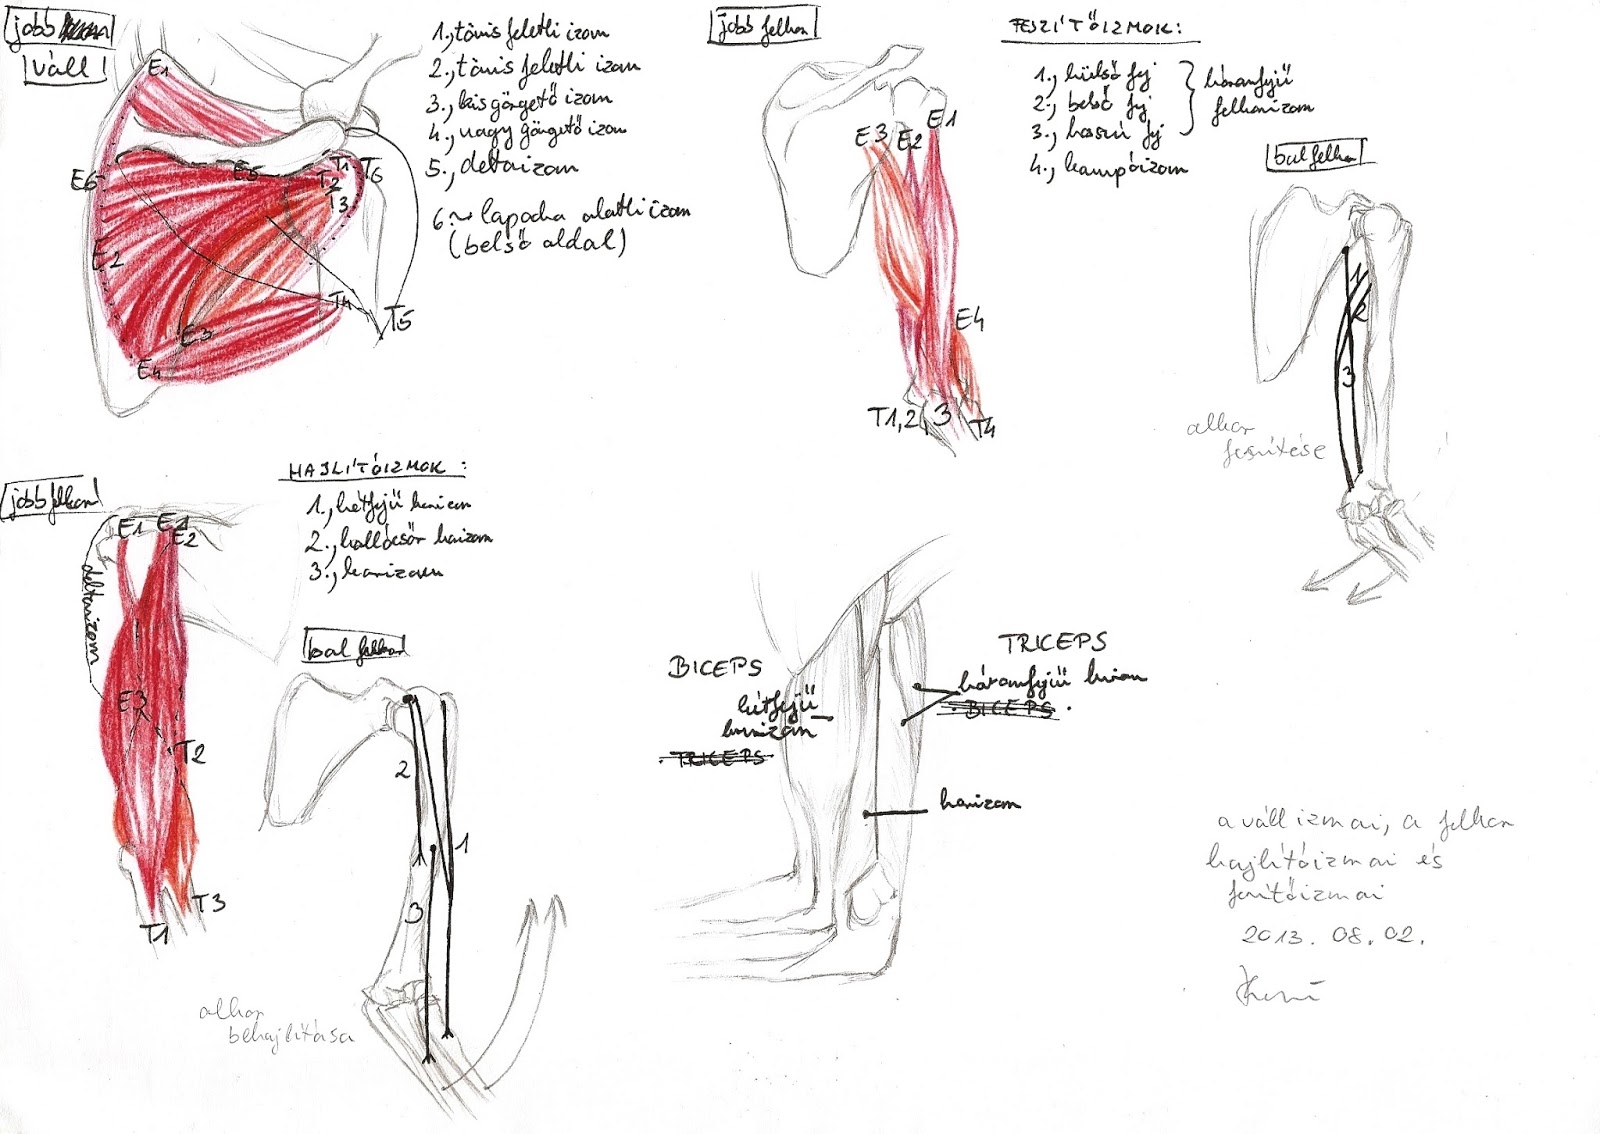 jobb
váll
1., tövis feletti izom
2., tövis feletti izom
3., kis görgető izom
4., nagy görgető izom
5., deltaizom
6 ~ lapocka alatti izom
(belső oldal)
E1
E6
E5
T1
T6
T2
T3
E2
T4
T5
E3
E4
jobb felkar
FESZÍTŐIZMOK:
1., külső fej
2., belső fej
3., hosszú fej
háromfejű
felkarizom
4., kampóizom
E3
E2
E1
E4
T1,2,
3
T4
bal felkar
1
2
3
alkar
feszítése
jobb felkar
HAJLÍTÓIZMOK:
1., kétfejű karizom
2., hollócsőr karizom
3., karizom
E1
E1
E2
deltaizom
E3
T2
T3
T1
bal felkar
2
1
3
alkar
behajlítása
BICEPS
kétfejű
karizom
TRICEPS
TRICEPS
háromfejű karizom
BICEPS
karizom
a váll izmai, a felkar
hajlítóizmai és
feszítőizmai
2013. 08. 02.